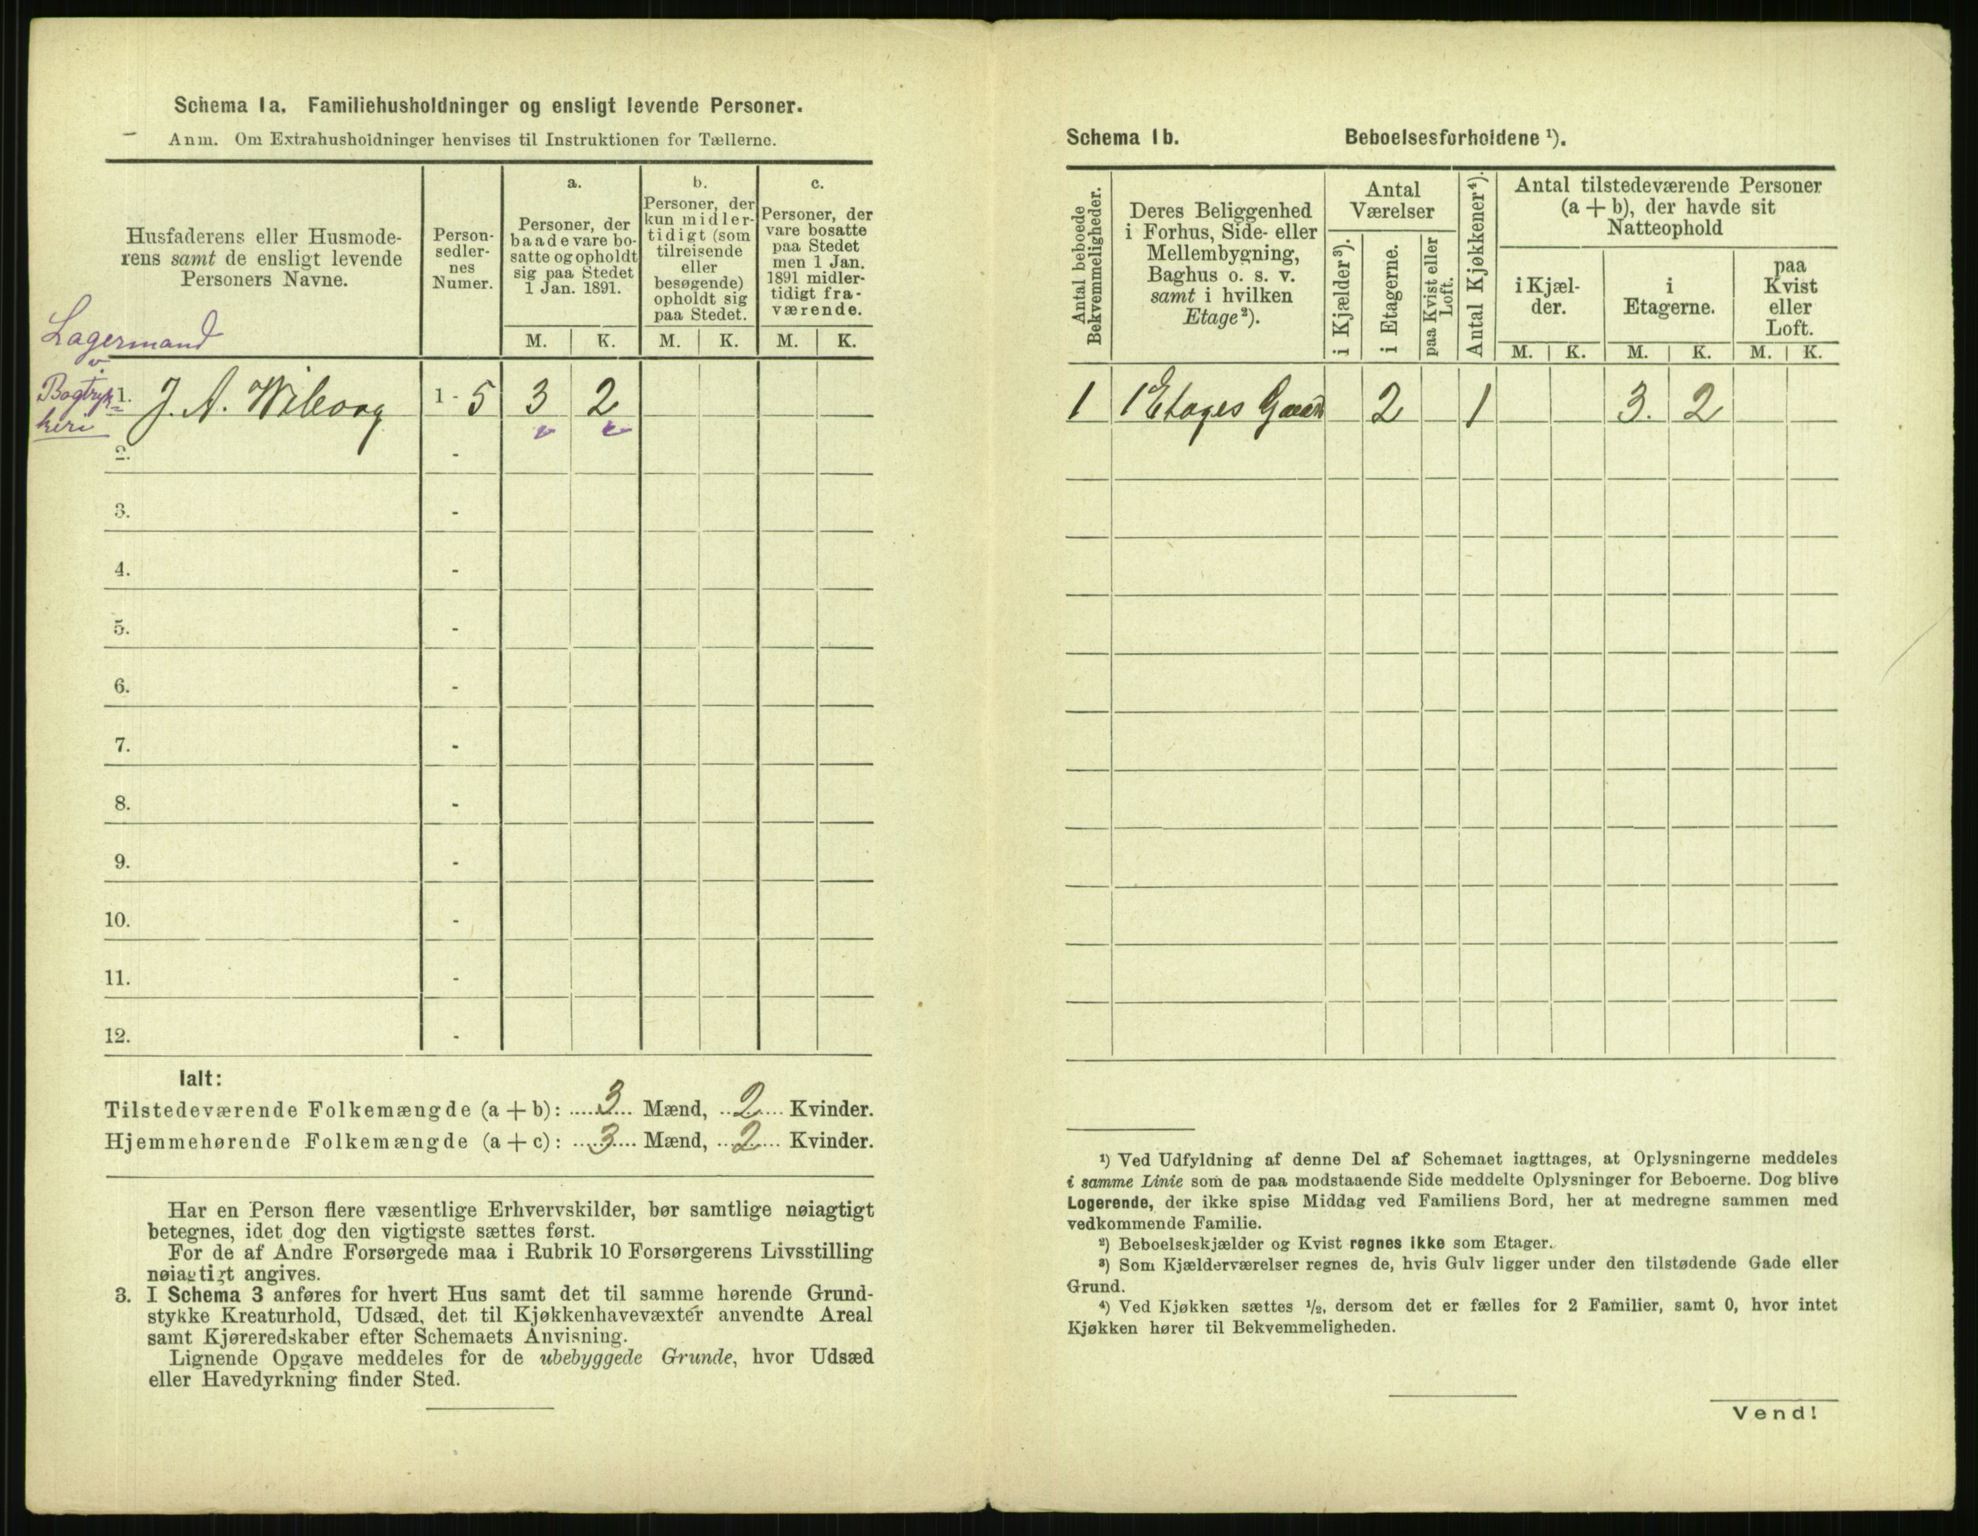 Schema 1a. Familiehusholdninger og ensligt levende Personer.
Anm. Om Extrahusholdninger henvises til Instruktionen for Tællerne.
Husfaderens eller Husmode-
rens samt de ensligt levende
Personers Navne.
Person-
sedler-
nes
Numer.
a.
Personer, der
baade vare bo-
satte og opholdt
sig paa Stedet
1 Jan. 1891.
b.
Personer, der
kun midler-
tidigt (som
tilreisende
eller
besøgende)
opholdt sig
paa Stedet.
c.
Personer, der
vare bosatte
paa Stedet
men 1 Jan.
1891 midler-
tidigt fra-
værende.
M. K. M. K. M. K.
Lagermand
v.
Bogtryk-
keri
1. J. A. Wiborg 1 - 5 3 2
2. -
3. -
4. -
5. -
6. -
7. -
8. -
9. -
10. -
11. -
12. -
Ialt:
Tilstedeværende Folkemængde (a + b): 3 Mænd, 2 Kvinder.
Hjemmehørende Folkemængde (a + c): 3 Mænd, 2 Kvinder.
Har en Person flere væsentlige Erhvervskilder, bør samtlige nøiagtigt
betegnes, idet dog den vigtigste sættes først.
For de af Andre Forsørgede maa i Rubrik 10 Forsørgerens Livsstilling
nøiagtigt angives.
3. I Schema 3 anføres for hvert Hus samt det til samme hørende Grund-
stykke Kreaturhold, Udsæd, det til Kjøkkenhavevæxter anvendte Areal
samt Kjøreredskaber efter Schemaets Anvisning.
Lignende Opgave meddeles for de ubebyggede Grunde, hvor Udsæd
eller Havedyrkning finder Sted.
Schema 1b. Beboelsesforholdene ¹).
Antal beboede
Bekvemmeligheder.
Deres Beliggenhed
i Forhus, Side- eller
Mellembygning,
Baghus o. s. v.
samt i hvilken
Etage²).
Antal
Værelser
i Kjælder³).
i Etagerne.
paa Kvist eller
Loft.
Antal Kjøkkener⁴).
Antal tilstedeværende Personer
(a + b), der havde sit
Natteophold
i Kjæl-
der.
i
Etagerne.
paa
Kvist
eller
Loft.
M. K. M. K. M. K.
1 1 Etages Gaard 2 1 3. 2
¹) Ved Udfyldning af denne Del af Schemaet iagttages, at Oplysningerne meddeles
i samme Linie som de paa modstaaende Side meddelte Oplysninger for Beboerne. Dog blive
Logerende, der ikke spise Middag ved Familiens Bord, her at medregne sammen med
vedkommende Familie.
²) Beboelseskjælder og Kvist regnes ikke som Etager.
³) Som Kjælderværelser regnes de, hvis Gulv ligger under den tilstødende Gade eller
Grund.
⁴) Ved Kjøkken sættes ½, dersom det er fælles for 2 Familier, samt 0, hvor intet
Kjøkken hører til Bekvemmeligheden.
Vend!